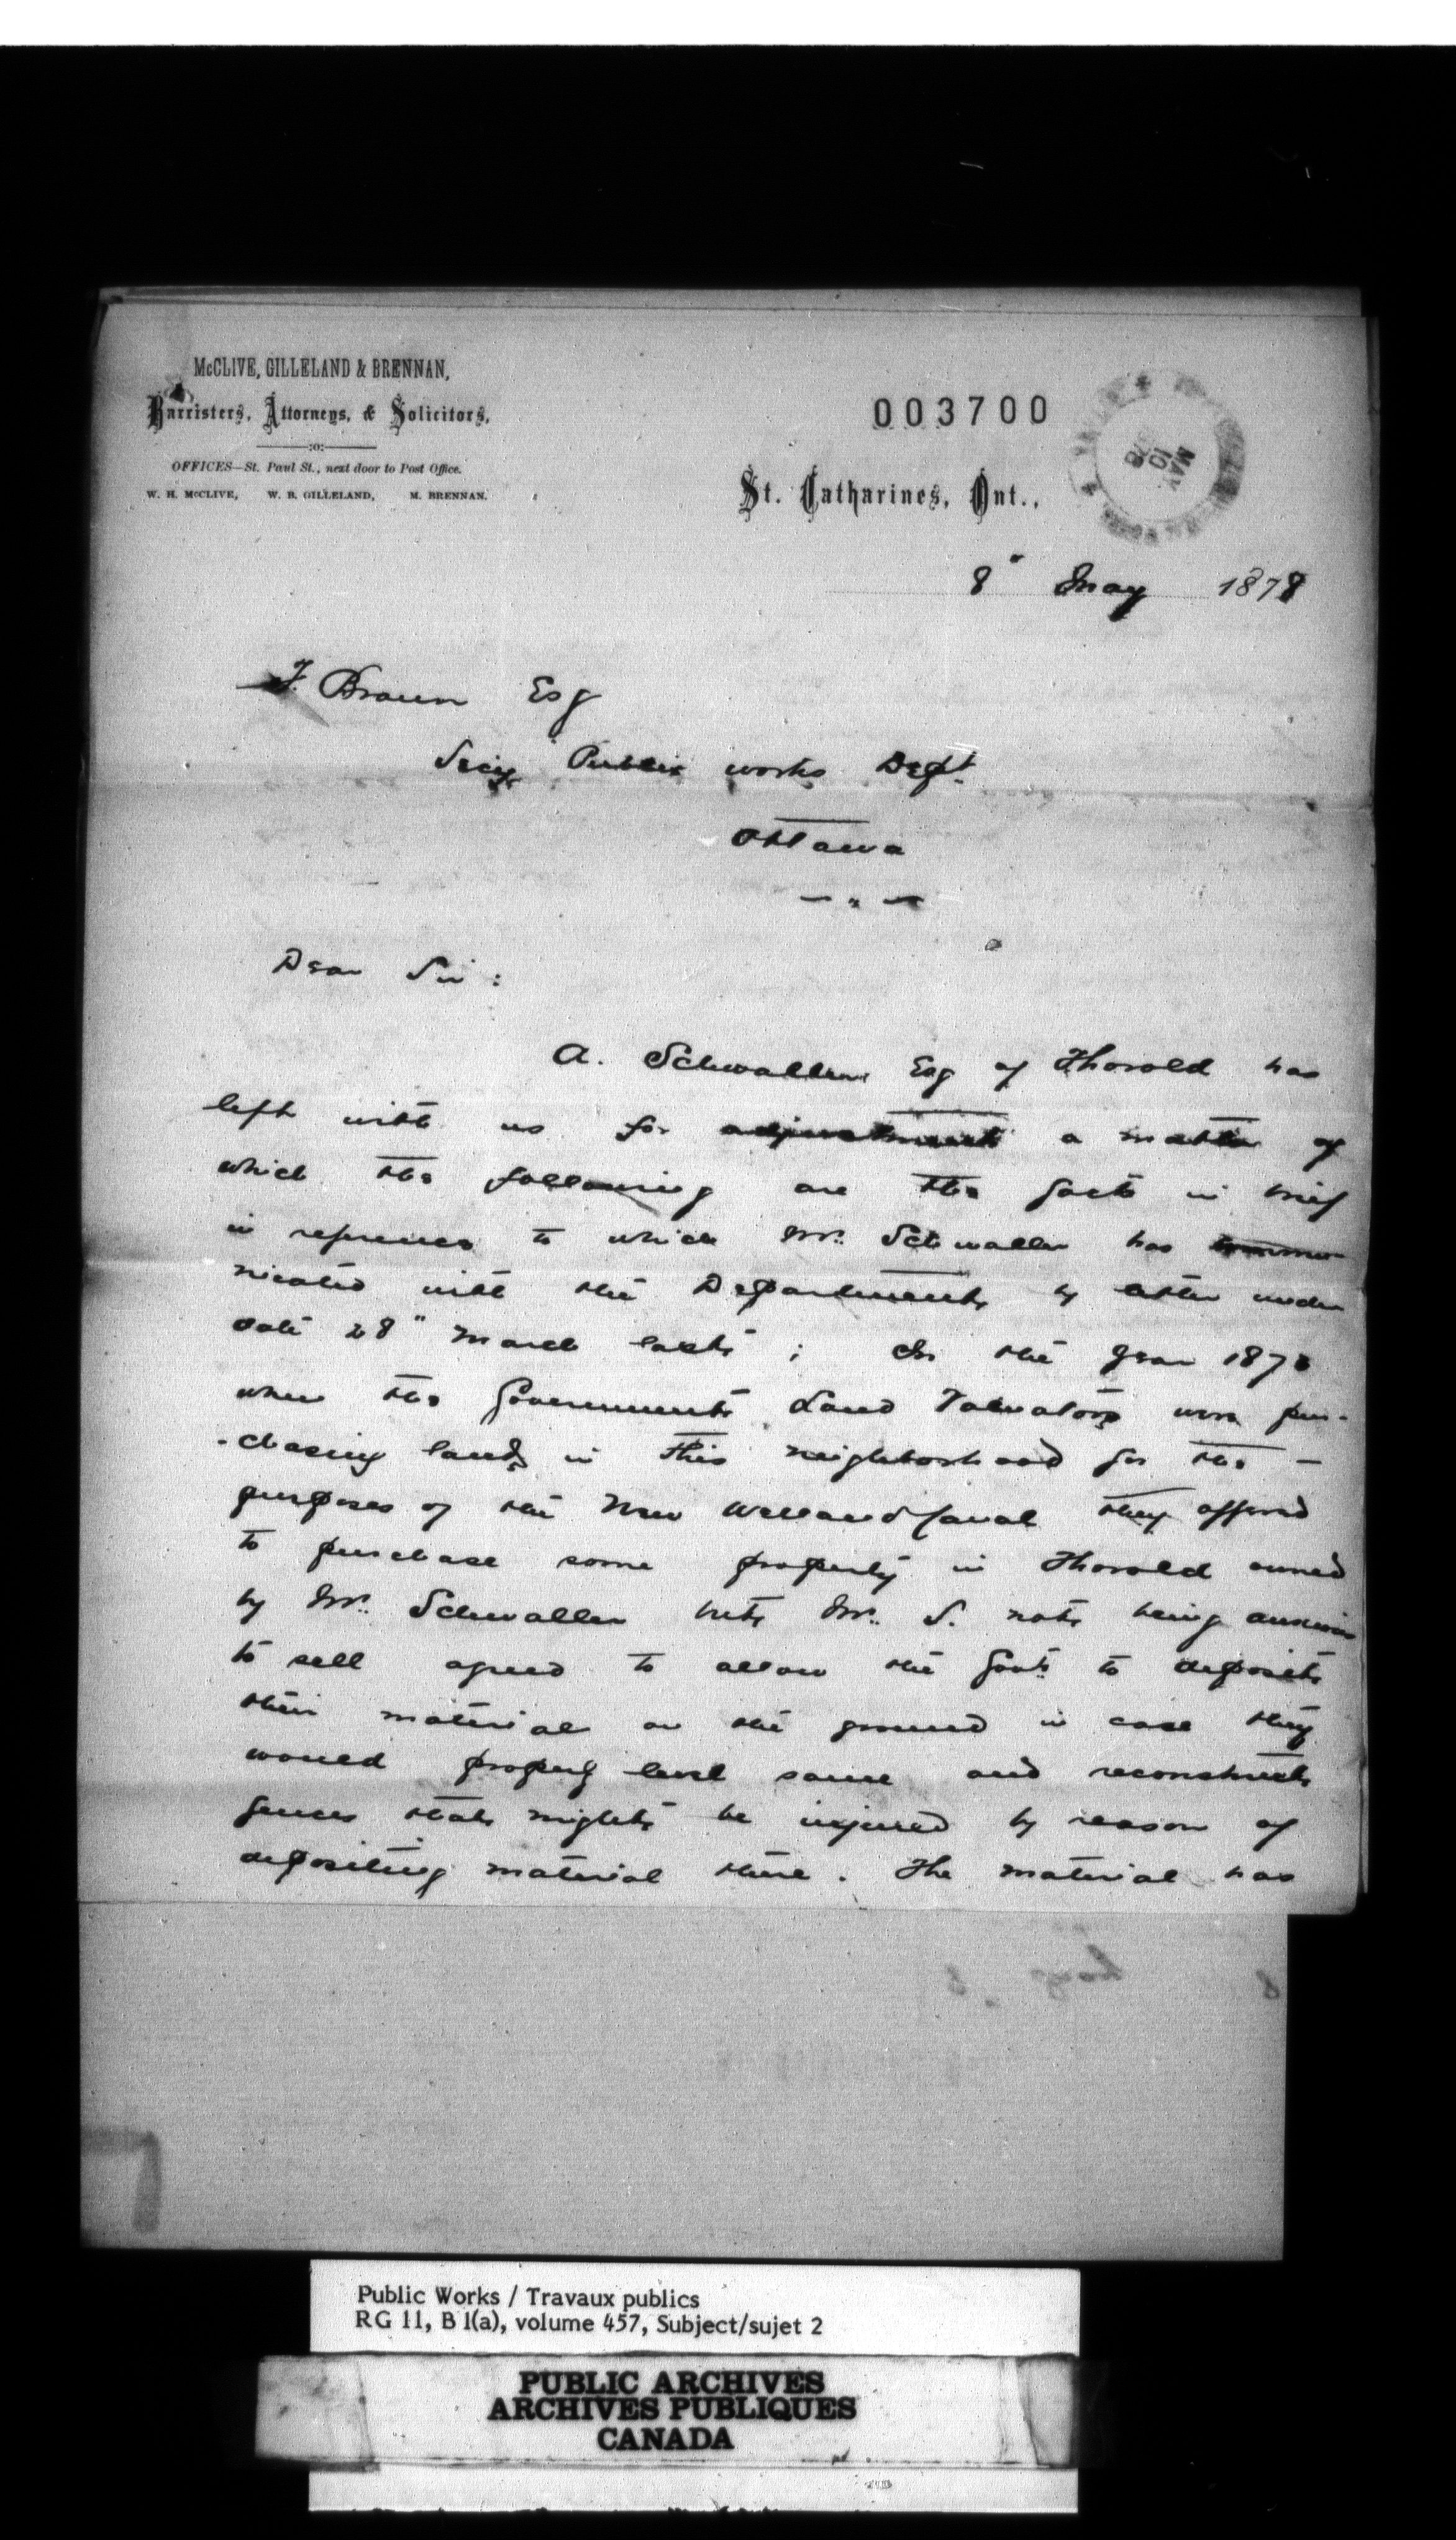 McCLIVE, GILLELAND & BRENNAN,
Barristers, Attorneys, & Solicitors,
:o:
OFFICES—St. Paul St., next door to Post Office.
W. H. McCLIVE, W. B. GILLELAND, M. BRENNAN.
003700
MAY 10 1878
St. Catharines, Ont.,
8" May 1878
F. Braun Esq
Secy Public works Dept.
Ottawa
Dear Sir :
A. Schwaller Esq of Thorold has
left with us for adjustment a matter of
which the following are the facts in brief
in reference to which Mr. Schwaller has commu
nicated with the Department by letter under
date 28" March last ; In the year 187
when the Government Land Valuators were pur-
-chasing lands in this neighborhood for the -
purposes of the New Welland Canal they offered
to purchase some property in Thorold owned
by Mr. Schwaller but Mr. S. not being anxious
to sell agreed to allow the Govt. to deposit
their material on the ground in case they
would properly level same and reconstruct
fences that might be injured by reason of
depositing material there. The material has
Public Works / Travaux publics
RG 11, B 1(a), volume 457, Subject/sujet 2
PUBLIC ARCHIVES
ARCHIVES PUBLIQUES
CANADA